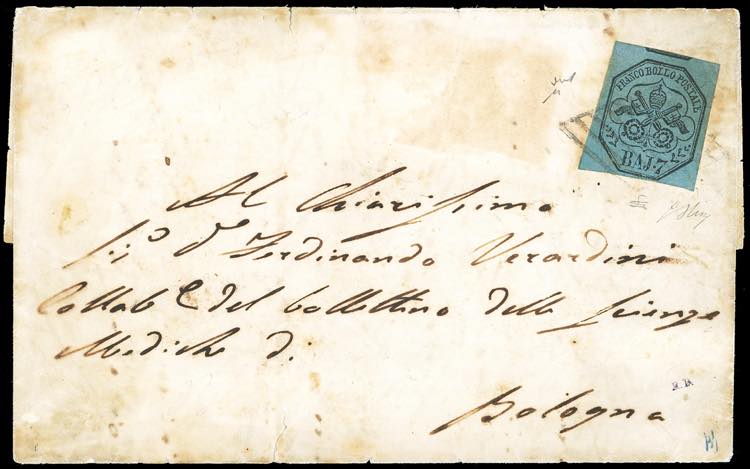 FRANCO BOLLO POSTALE
BAJ. 7
Al Chiarissimo
Sig.º d.r Ferdinando Verardini
Collab.e del bollettino delle scienze
Mediche di
Bologna
E.D.